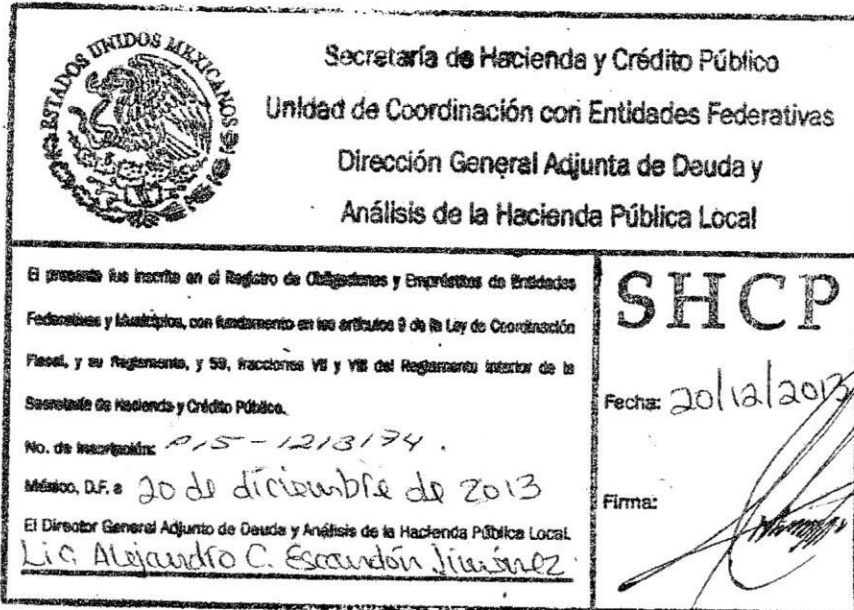 ESTADOS UNIDOS MEXICANOS
Secretaría de Hacienda y Crédito Público
Unidad de Coordinación con Entidades Federativas
Dirección General Adjunta de Deuda y
Análisis de la Hacienda Pública Local
El presente fue inscrito en el Registro de Obligaciones y Empréstitos de Entidades
Federativas y Municipios, con fundamento en los artículos 9 de la Ley de Coordinación
Fiscal, y su Reglamento, y 59, fracciones VII y VIII del Reglamento Interior de la
Secretaría de Hacienda y Crédito Público.
No. de inscripción: P15-1213174.
México, D.F. a 20 de diciembre de 2013
El Director General Adjunto de Deuda y Análisis de la Hacienda Pública Local.
Lic. Alejandro C. Escandón Jiménez
SHCP
Fecha: 20/12/2013
Firma: